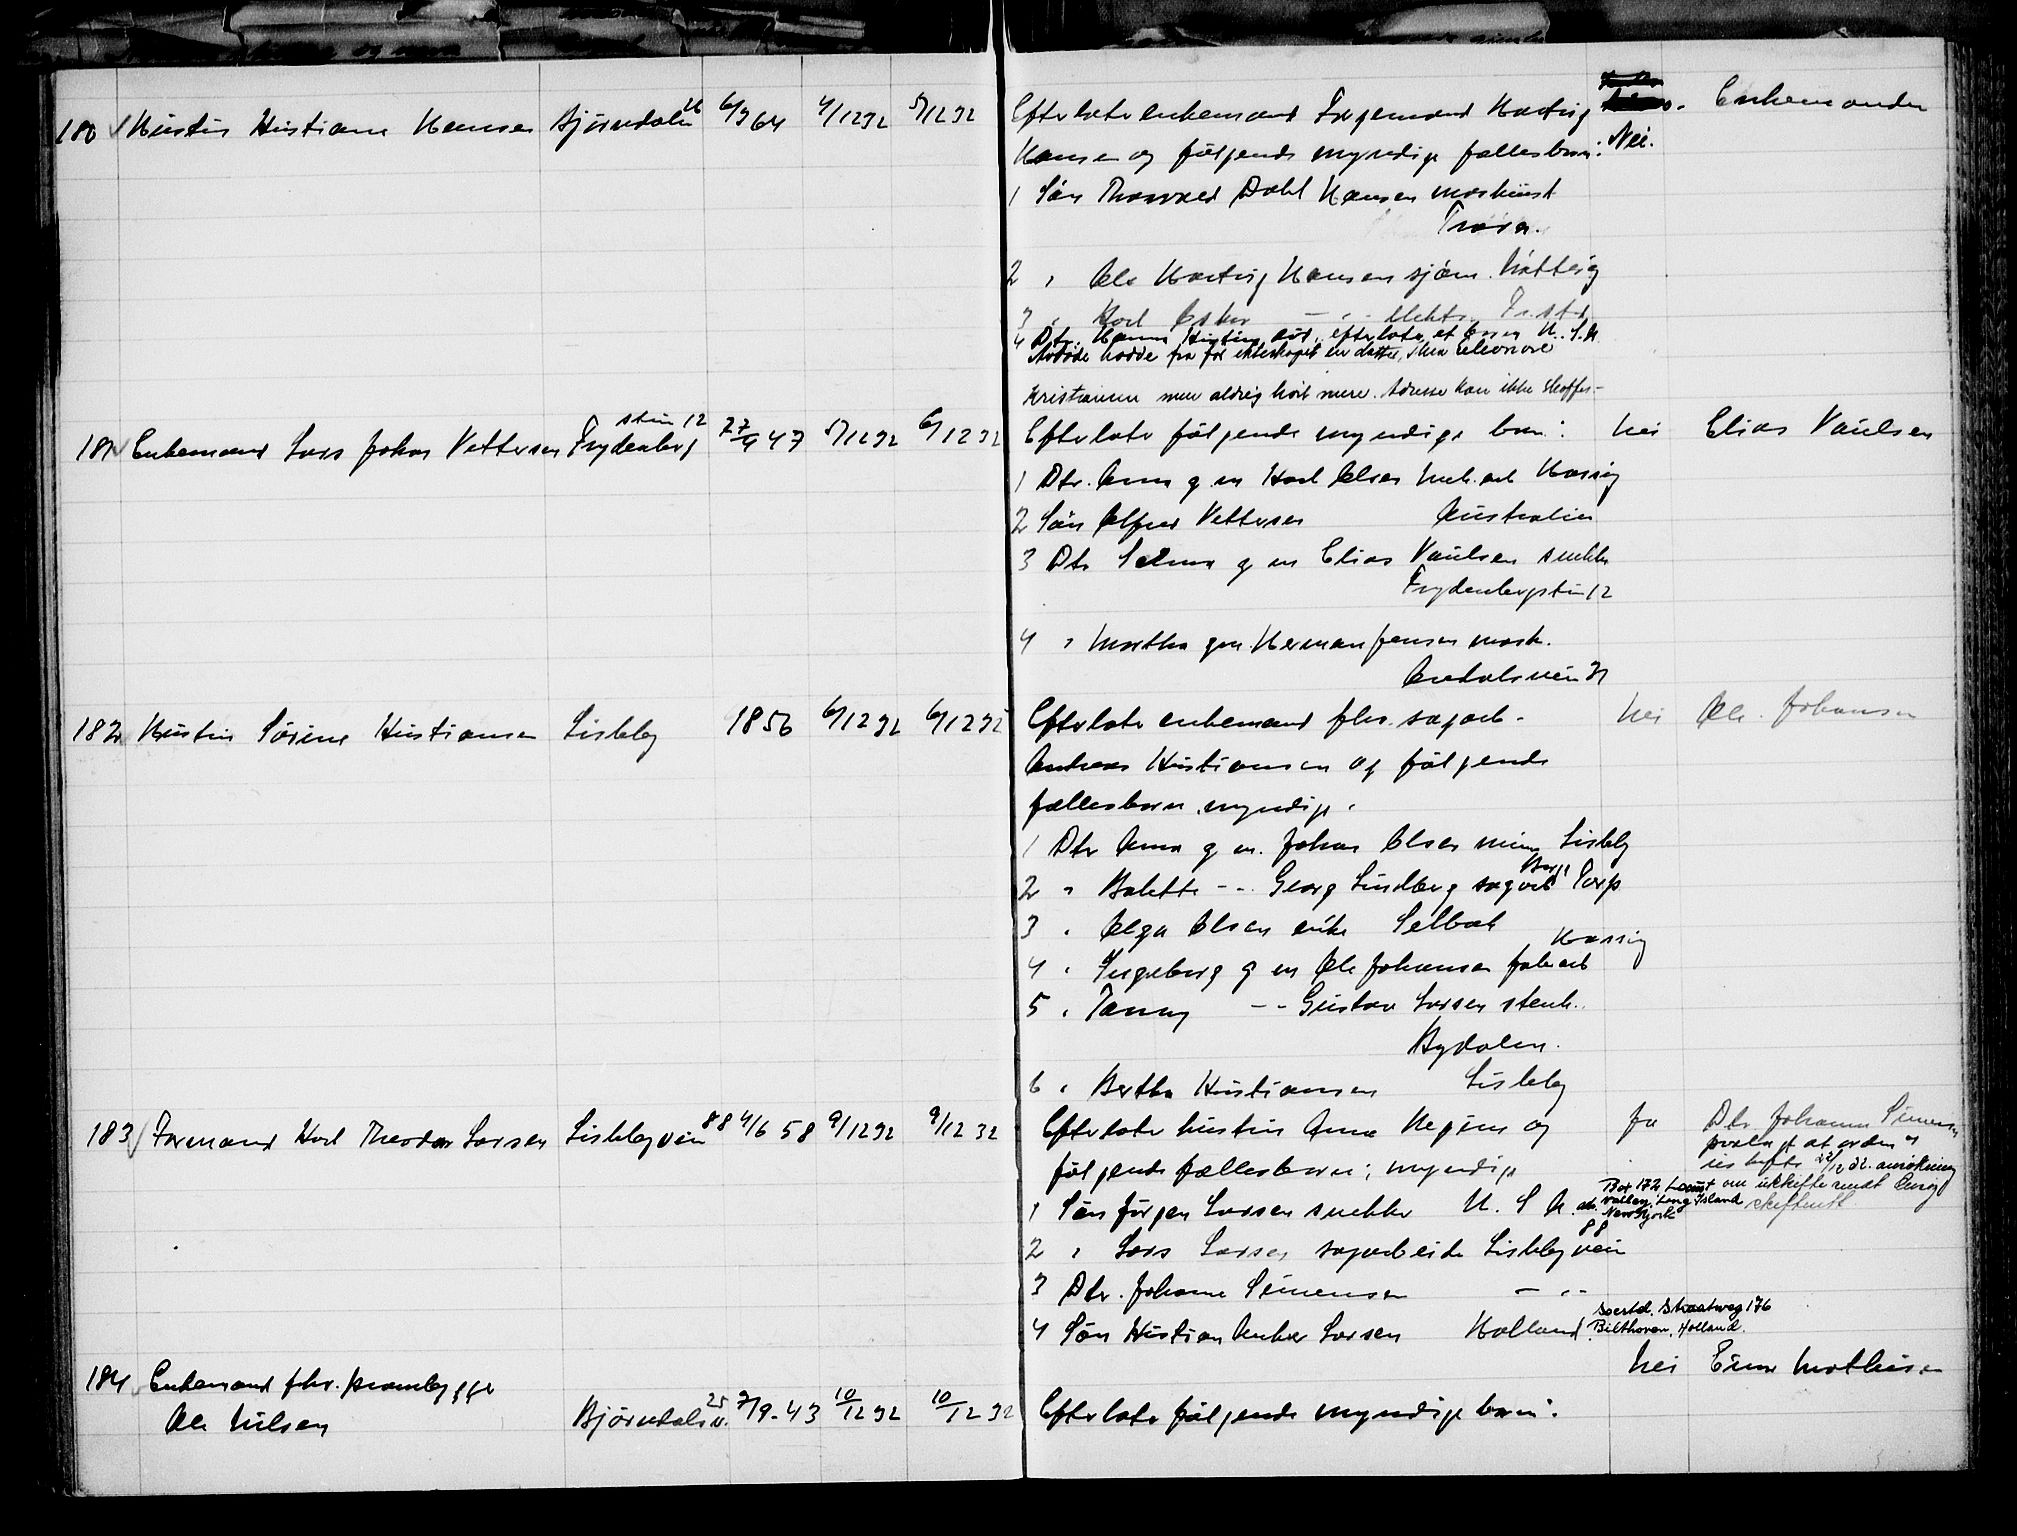 180 Hustru Kristiane Hansen Bjørndalen 6/3 64 4/12 32 5/12 32 Efterlater enkemand Færgemand Hartvig Enkemanden
Hansen og følgende myndige fællesbarn: Nei.
1 Søn Thorvald Dahl Hansen maskinist
Trara.
2 " Ole Hartvig Hansen sjøm. Nøtterø
3 " Karl Oskar - " - elektr. Fr.stad
4 Dtr. Hanna Kristine død, efterlater et barn U.S.A.
Avdøde hadde fra før ekteskapet en datter, Thea Eleonore
Kristiansen men aldrig hørt mere. Adresse kan ikke skaffes -
181 Enkemand Lars Johan Pettersen Frydenberg stien 12 27/9 47 5/12 32 6/12 32 Efterlater følgende myndige barn: Nei Elias Paulsen
1 Dtr. Anna g. m. Karl Olsen mek.arb Kassig
2 Søn Alfred Pettersen Australien
3 Dtr Selma g m Elias Paulsen snekker
Frydenbergstien 12
4 " Martha g m. Herman Jensen mask.
31
182 Hustru Sørine Kristiansen Lisleby 1856 6/12 32 6/12 32 Efterlater enkemand fhv. sagarb - Nei Ole Johansen
Andreas Kristiansen og følgende
fællesbarn, myndige:
1 Dtr Anna g m. Johan Olsen Lisleby
2 " Bolette - " - Georg Lindberg sagarb Borge Torp
3 " Olga Olsen enke Selbak
4 " Ingeborg g m Ole Johansen fabarb Kassig
5 " Fanny - " - Gustav Larsen stenh.
Bydalen.
6 " Bertha Kristiansen Lisleby
183 Formand Karl Theodor Larsen Lislebyveien 88 4/6 58 9/12 32 9/12 32 Efterlater hustru Anna Regine og Ja Dtr. Johanne Simensen
følgende fællesbarn; myndige
paalagt at ordne
22/12 32. om uskifte sendt
1 Søn Jørgen Larsen snekker U. S. A. adr. Box 172 Locust Valley, Long Island New York skifterett
2 " Lars Larsen sagarbeider Lislebyveien 88
3 Dtr. Johanne Simensen - " -
4 Søn Kristian Anker Larsen Holland Soestd. Straatweg 176
Bilthoven, Holland.
184 Enkemand fhv. prambygger Nei Einar Mathisen
Ole Nilsen Bjørndalsv. 25 3/9 - 43 10/12 32 10/12 32 Efterlater følgende myndige barn: